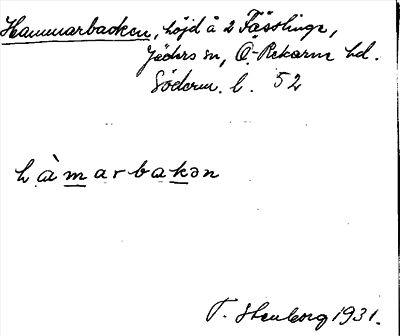 Hammarbacken, höjd å 2 Fässlinge,
Jäders sn, Ö.-Rekarne hd.
Söderm. l. 52
hàmarbakən
T. Stenborg 1931.